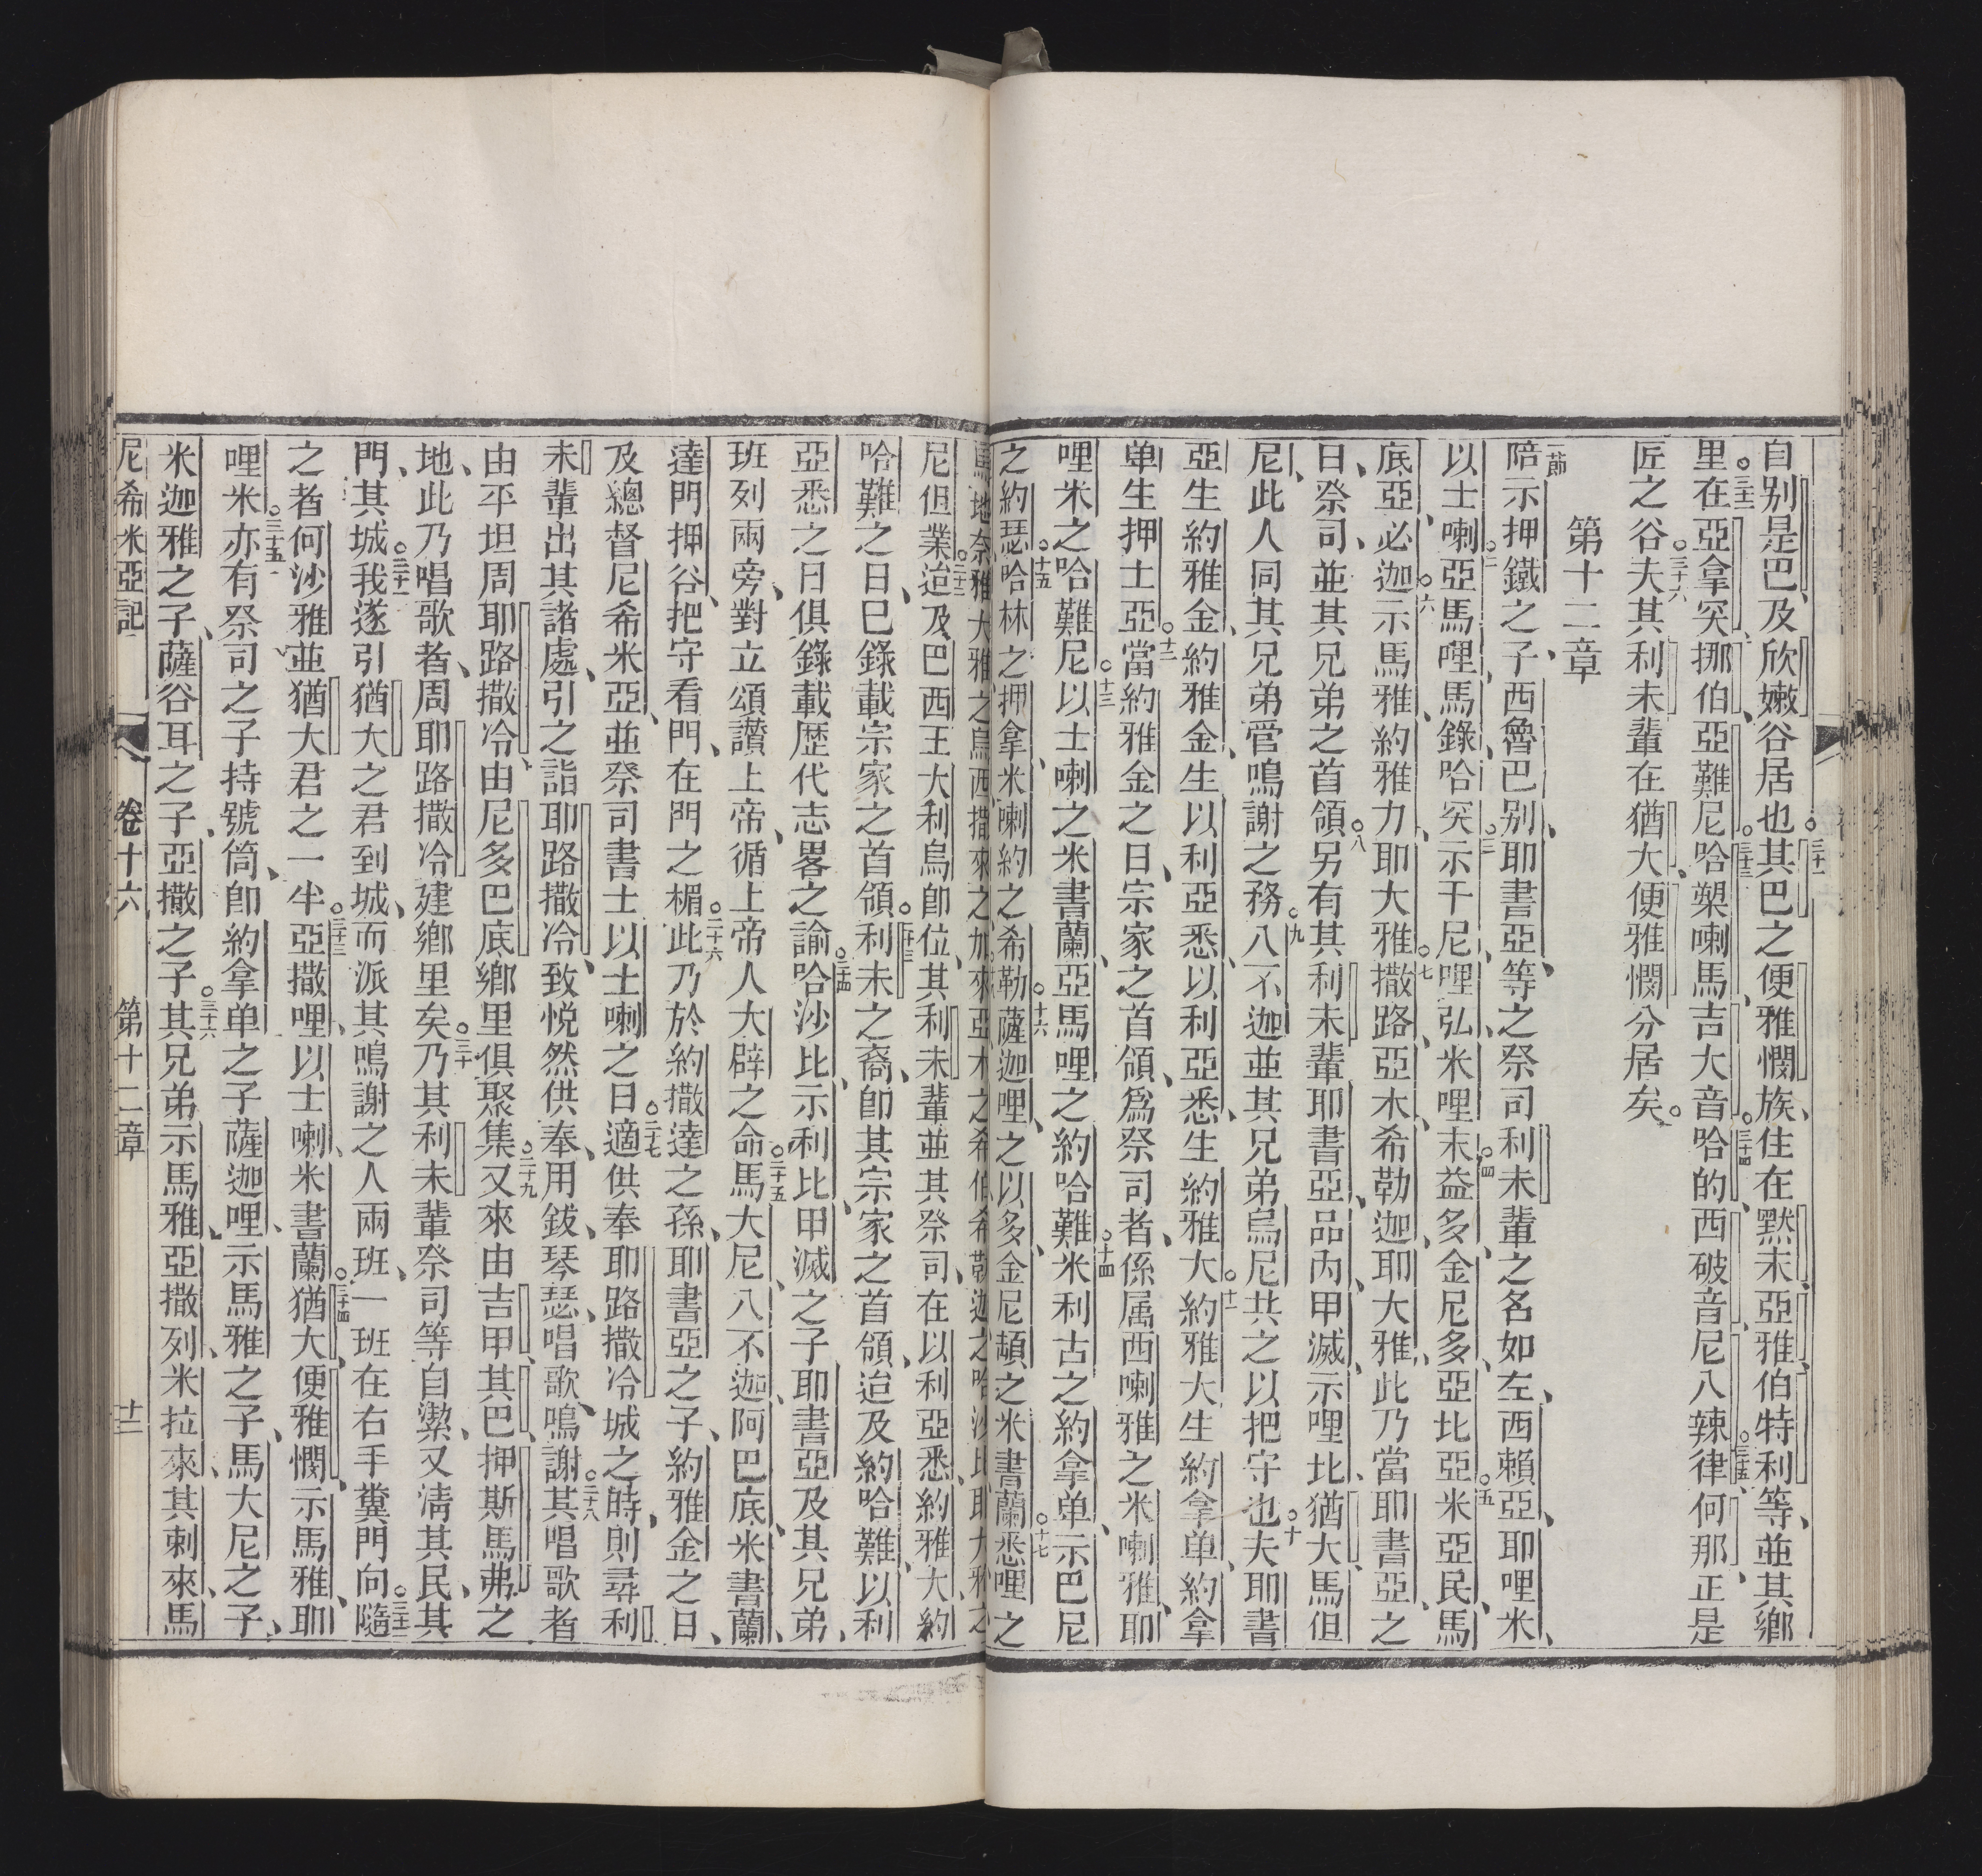 自别是巴及欣嫩谷居也○三十一其巴之便雅憫族住在默未亞雅伯特利等並其鄉
里○三十二在亞拿突挪伯亞難尼○三十三哈槊喇馬吉大音○三十四哈的西破音尼八辣律○三十五何那正是
匠之谷○三十六夫其利未輩在猶大便雅憫分居矣○
第十二章
一節陪示押鐵之子西魯巴别耶書亞等之祭司利未輩之名如左西賴亞耶哩米
以士喇○二亞馬哩馬錄哈突○三示干尼哩弘米哩末○四益多金尼多亞比亞○五米亞民馬
底亞必迦○六示馬雅約雅力耶大雅○七撒路亞木希勒迦耶大雅此乃當耶書亞之
日祭司並其兄弟之首領○八另有其利未輩耶書亞品內甲滅示哩比猶大馬但
尼此人同其兄弟管鳴謝之務○九八不迦並其兄弟烏尼共之以把守也○十夫耶書
亞生約雅金約雅金生以利亞悉以利亞悉生約雅大○十一約雅大生約拿单約拿
单生押士亞○十二當約雅金之日宗家之首領爲祭司者係属西喇雅之米喇雅耶
哩米之哈難尼○十三以士喇之米書蘭亞馬哩之約哈難○十四米利古之約拿单示巴尼
之約瑟○十五哈林之押拿米喇約之希勒○十六薩迦哩之以多金尼頓之米書蘭○十七悉哩之
尼但業○二十二迨及巴西王大利烏卽位其利未輩並其祭司在以利亞悉約雅大約
哈難之日已錄載宗家之首領○二十三利未之裔卽其宗家之首領迨及約哈難以利
亞悉之日俱錄載歷代志畧之諭○二十四哈沙比示利比甲滅之子耶書亞及其兄弟
班列兩旁對立頌讚上帝循上帝人大辟之命○二十五馬大尼八不迦阿巴底米書蘭
達門押谷把守看門在門之楣○二十六此乃於約撒達之孫耶書亞之子約雅金之日
及總督尼希米亞並祭司書士以士喇之日○二十七適供奉耶路撒冷城之時則尋利
未輩出其諸處引之詣耶路撒冷致悅然供奉用鈸琴瑟唱歌鳴謝○二十八其唱歌者
由平坦周耶路撒冷由尼多巴底鄉里俱聚集○二十九又來由吉甲其巴押斯馬弗之
地此乃唱歌者周耶路撒冷建鄉里矣○三十乃其利未輩祭司等自潔又淸其民其
門其城○三十一我遂引猶大之君到城而派其鳴謝之人兩班一班在右手糞門向○三十二隨
之者何沙雅並猶大君之一半○三十三亞撒哩以士喇米書蘭○三十四猶大便雅憫示馬雅耶
哩米○三十五亦有祭司之子持號筒卽約拿单之子薩迦哩示馬雅之子馬大尼之子
米迦雅之子薩谷耳之子亞撒之子○三十六其兄弟示馬雅亞撒列米拉來其剌來馬
尼希米亞記 卷十六 第十二章 十二